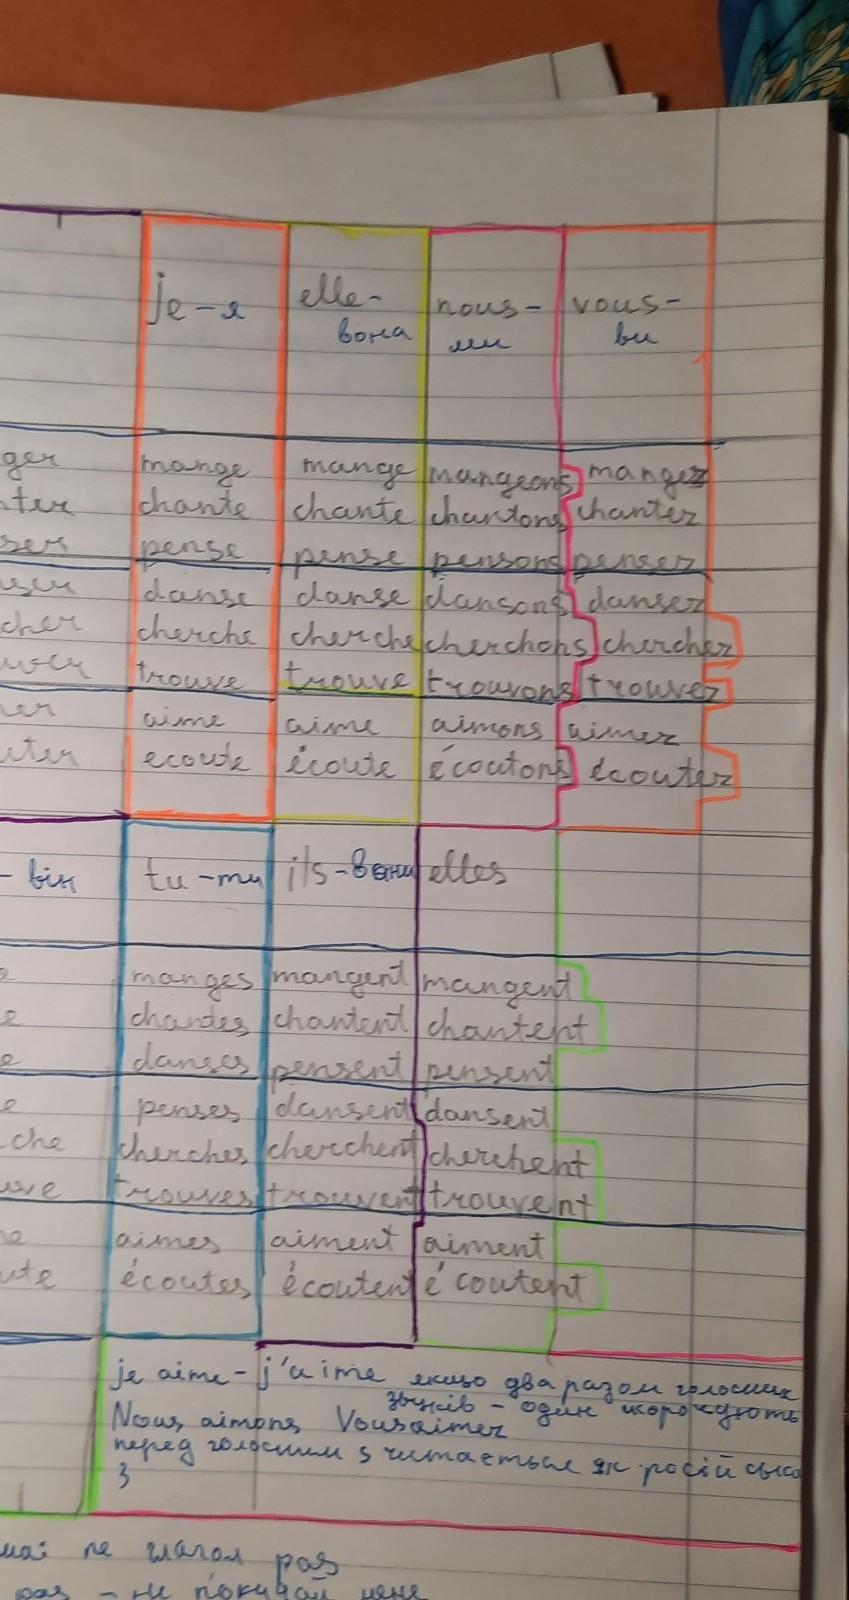 je-я elle- nous- vous-
вона ми ви
ger mange mange mangeons mangez
ter chante chante chantons chantez
ser pense pense pensons pensez
ser danse danse dansons dansez
cher cherche cherche cherchons cherchez
trouve trouve trouvons trouvez
er aime aime aimons aimez
uter ecoute écoute écoutons écoutez
- він tu-ти ils-вони elles
e manges mangent mangent
e chantes chantent chantent
e danses pensent pensent
e penses dansent dansent
che cherches cherchent cherchent
uve trouves trouvent trouvent
e aimes aiment aiment
ute écoutes écoutent écoutent
je aime - j'aime якщо два разом голосних
звуків - один скорочують
Nous aimons Vous aimez
перед голосним s читається як
з
ne глагол pas
pas - не покидай мене